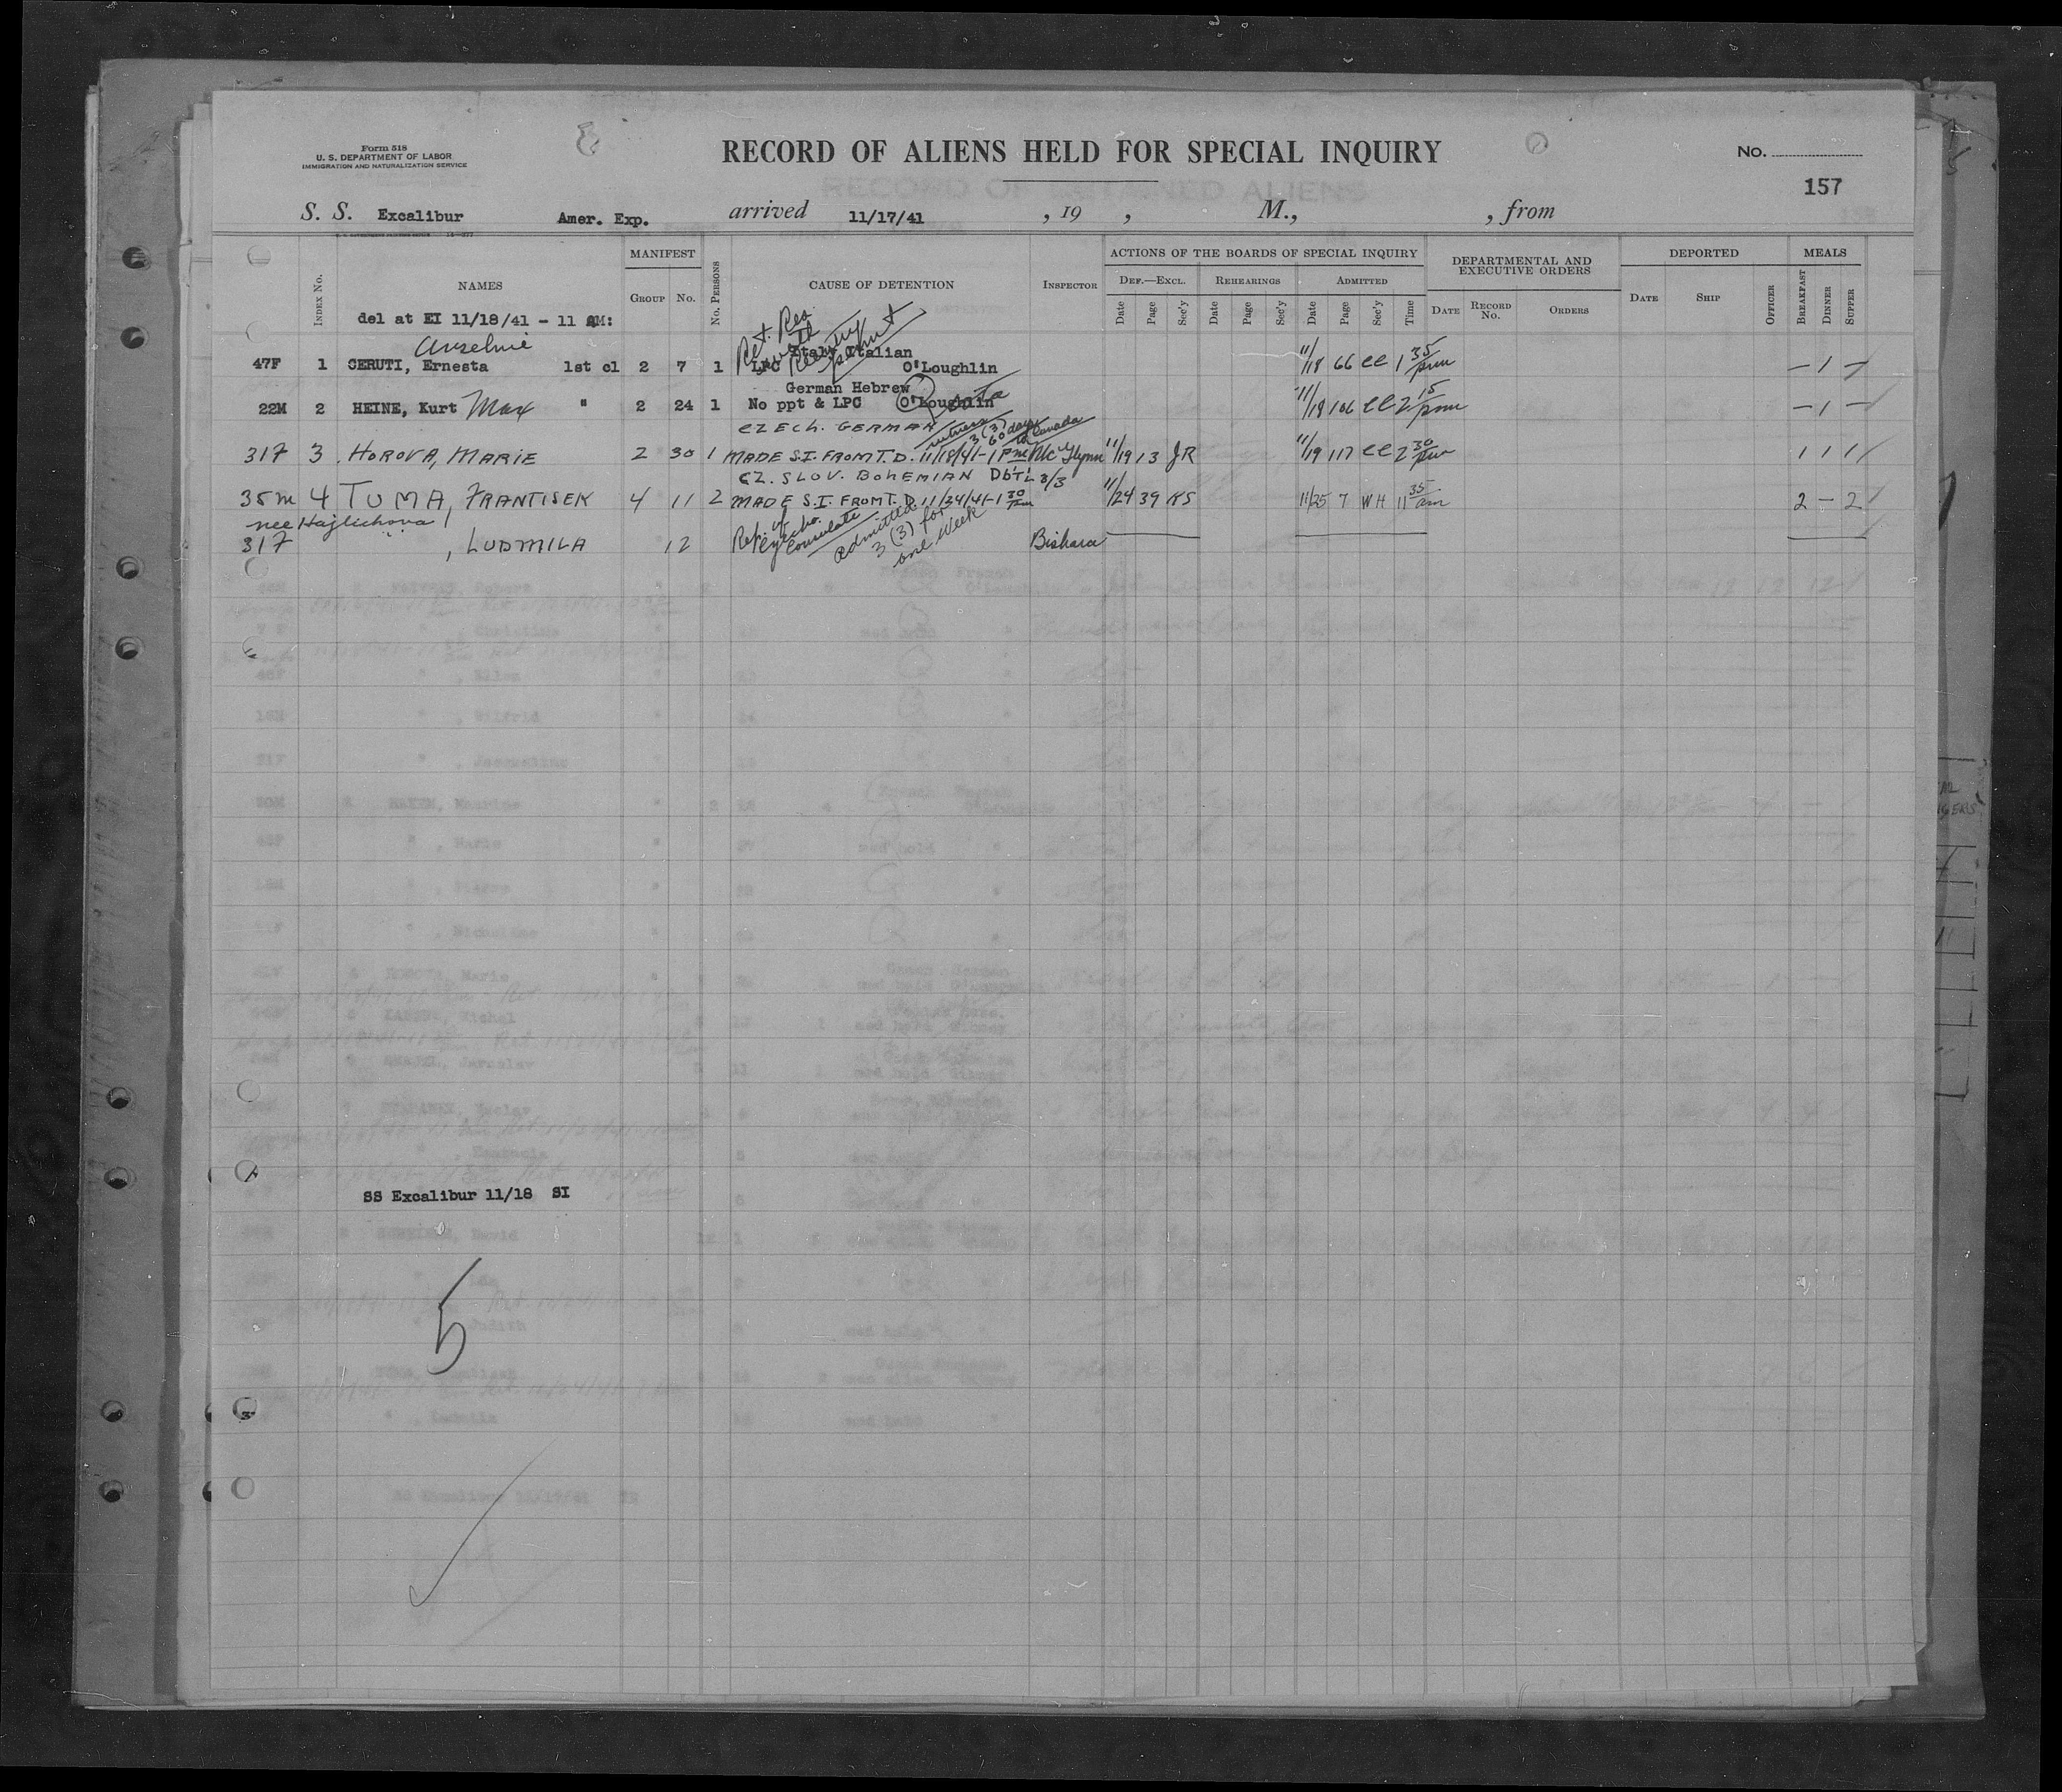 Form 518
U. S. DEPARTMENT OF LABOR
IMMIGRATION AND NATURALIZATION SERVICE
RECORD OF ALIENS HELD FOR SPECIAL INQUIRY
No.
157
S. S. Excalibur Amer. Exp. arrived 11/17/41 , 19 , M., , from
MANIFEST ACTIONS OF THE BOARDS OF SPECIAL INQUIRY DEPARTMENTAL AND EXECUTIVE ORDERS DEPORTED MEALS
Index No. NAMES Group No. No. Persons CAUSE OF DETENTION Inspector Def.—Excl. Rehearings Admitted
Date Page Sec'y Date Page Sec'y Date Page Sec'y Time Date Record No. Orders Date Ship Officer Breakfast Dinner Supper
del at EI 11/18/41 - 11 AM:
Anselmi Italy Italian
47F 1 CERUTI, Ernesta 1st cl 2 7 1 LPC O'Loughlin 11/18 66 CC 1 35 pm – 1 –
German Hebrew
22M 2 HEINE, Kurt Max " 2 24 1 No ppt & LPC O'Loughlin 11/18 106 CC 2 15 pm – 1 –
CZECH. GERMAN 3(3) 60 days to Canada
31F 3 HOROVA, MARIE 2 30 1 MADE S.I. FROM T.D. 11/18/41-1 PM McGlynn 11/19 13 JR 11/19 117 CC 2 30 pm 1 1 1
CZ. SLOV. BOHEMIAN DbT'L 3/3
35m 4 TUMA, FRANTISEK 4 11 2 MADE S.I. FROM T.D. 11/24/41-1 30 pm 11/24 39 KS 11/25 7 WH 11 35 am 2 – 2
nee Hajlichova
31F , LUDMILA 12 Rep. of Czecho. Consulate Admitted 3(3) for one week Bishara
SS Excalibur 11/18 SI
5